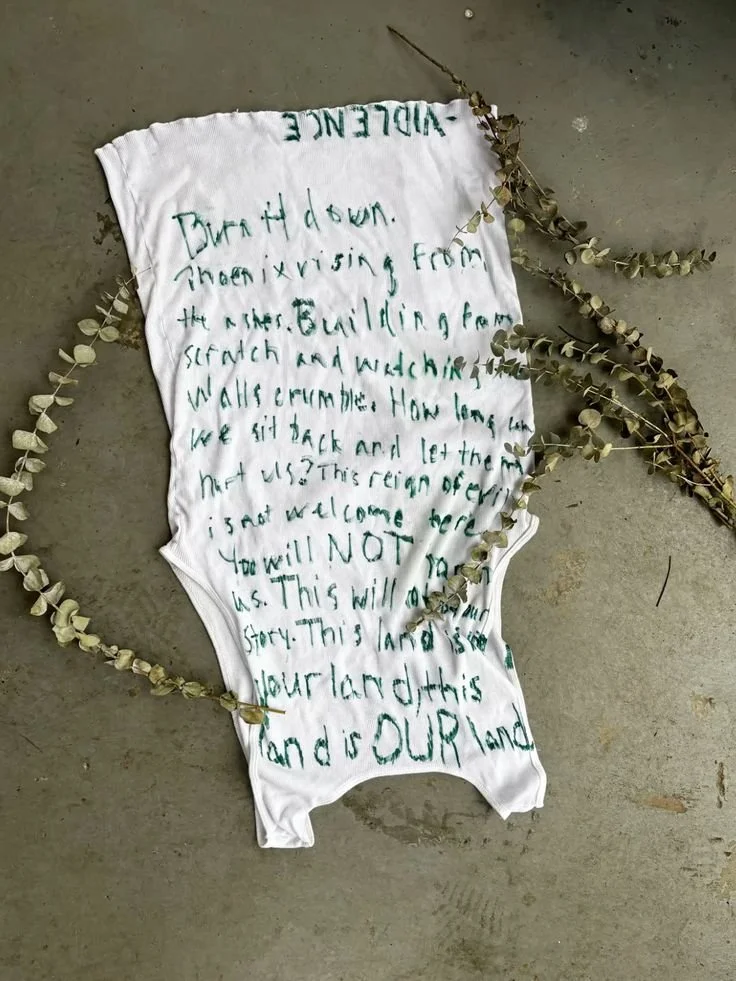 -VIOLENCE
Burn it down.
Phoenix rising From
the ashes. Building from
scratch and watching
walls crumble. How long can
we sit back and let them
hurt us? This reign of evil
is not welcome here
You will NOT
us. This will our
story. This land is not
your land, this
land is OUR land